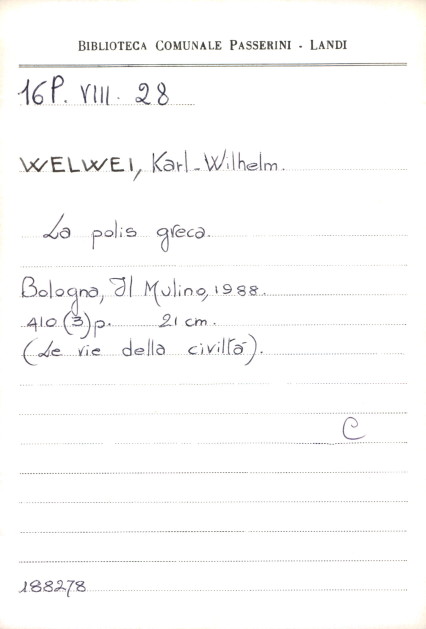 BIBLIOTECA COMUNALE PASSERINI - LANDI
16P. VIII. 28
WELWEI, Karl-Wilhelm.
La polis greca.
Bologna, Il Mulino, 1988.
410 (3) p. 21 cm.
(Le vie della civiltà).
C
188278